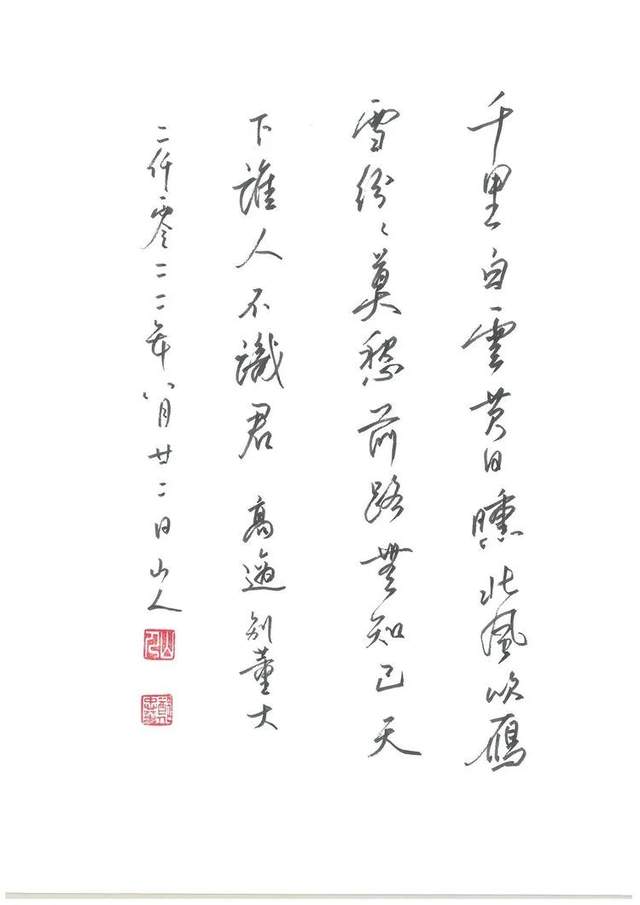 千里白雲黄日曛北風吹鴈
雪紛〻莫愁前路無知己天
下誰人不識君 高適别董大
二仟零二二年八月廿二日山人
山人